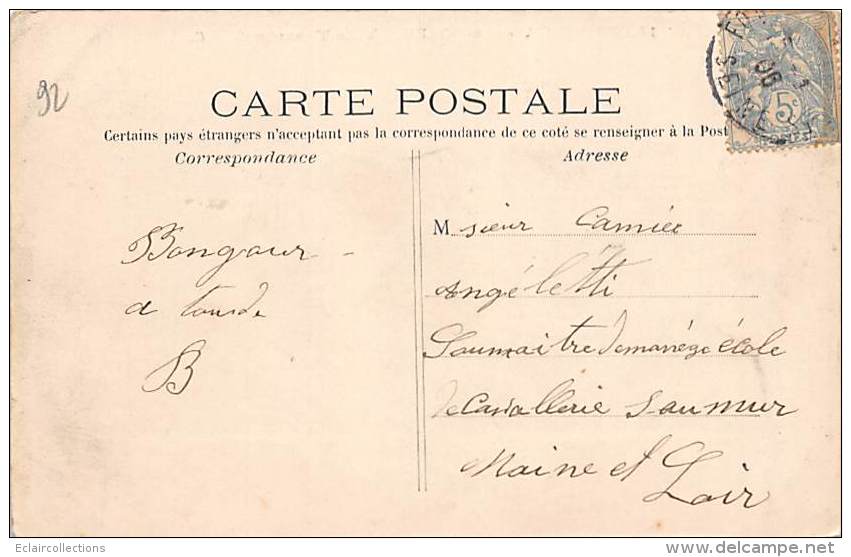 92
CARTE POSTALE
Certains pays étrangers n'acceptant pas la correspondance de ce coté se renseigner à la Post
Correspondance
Adresse
SEINE
06
5c
Bongour
a tousde
B
Msieur Camiée
Angéletti
Soumaitre de manége école
de Cavallerie Saumur
Maine et
Loir
Eclaircollections
www.delcampe.net